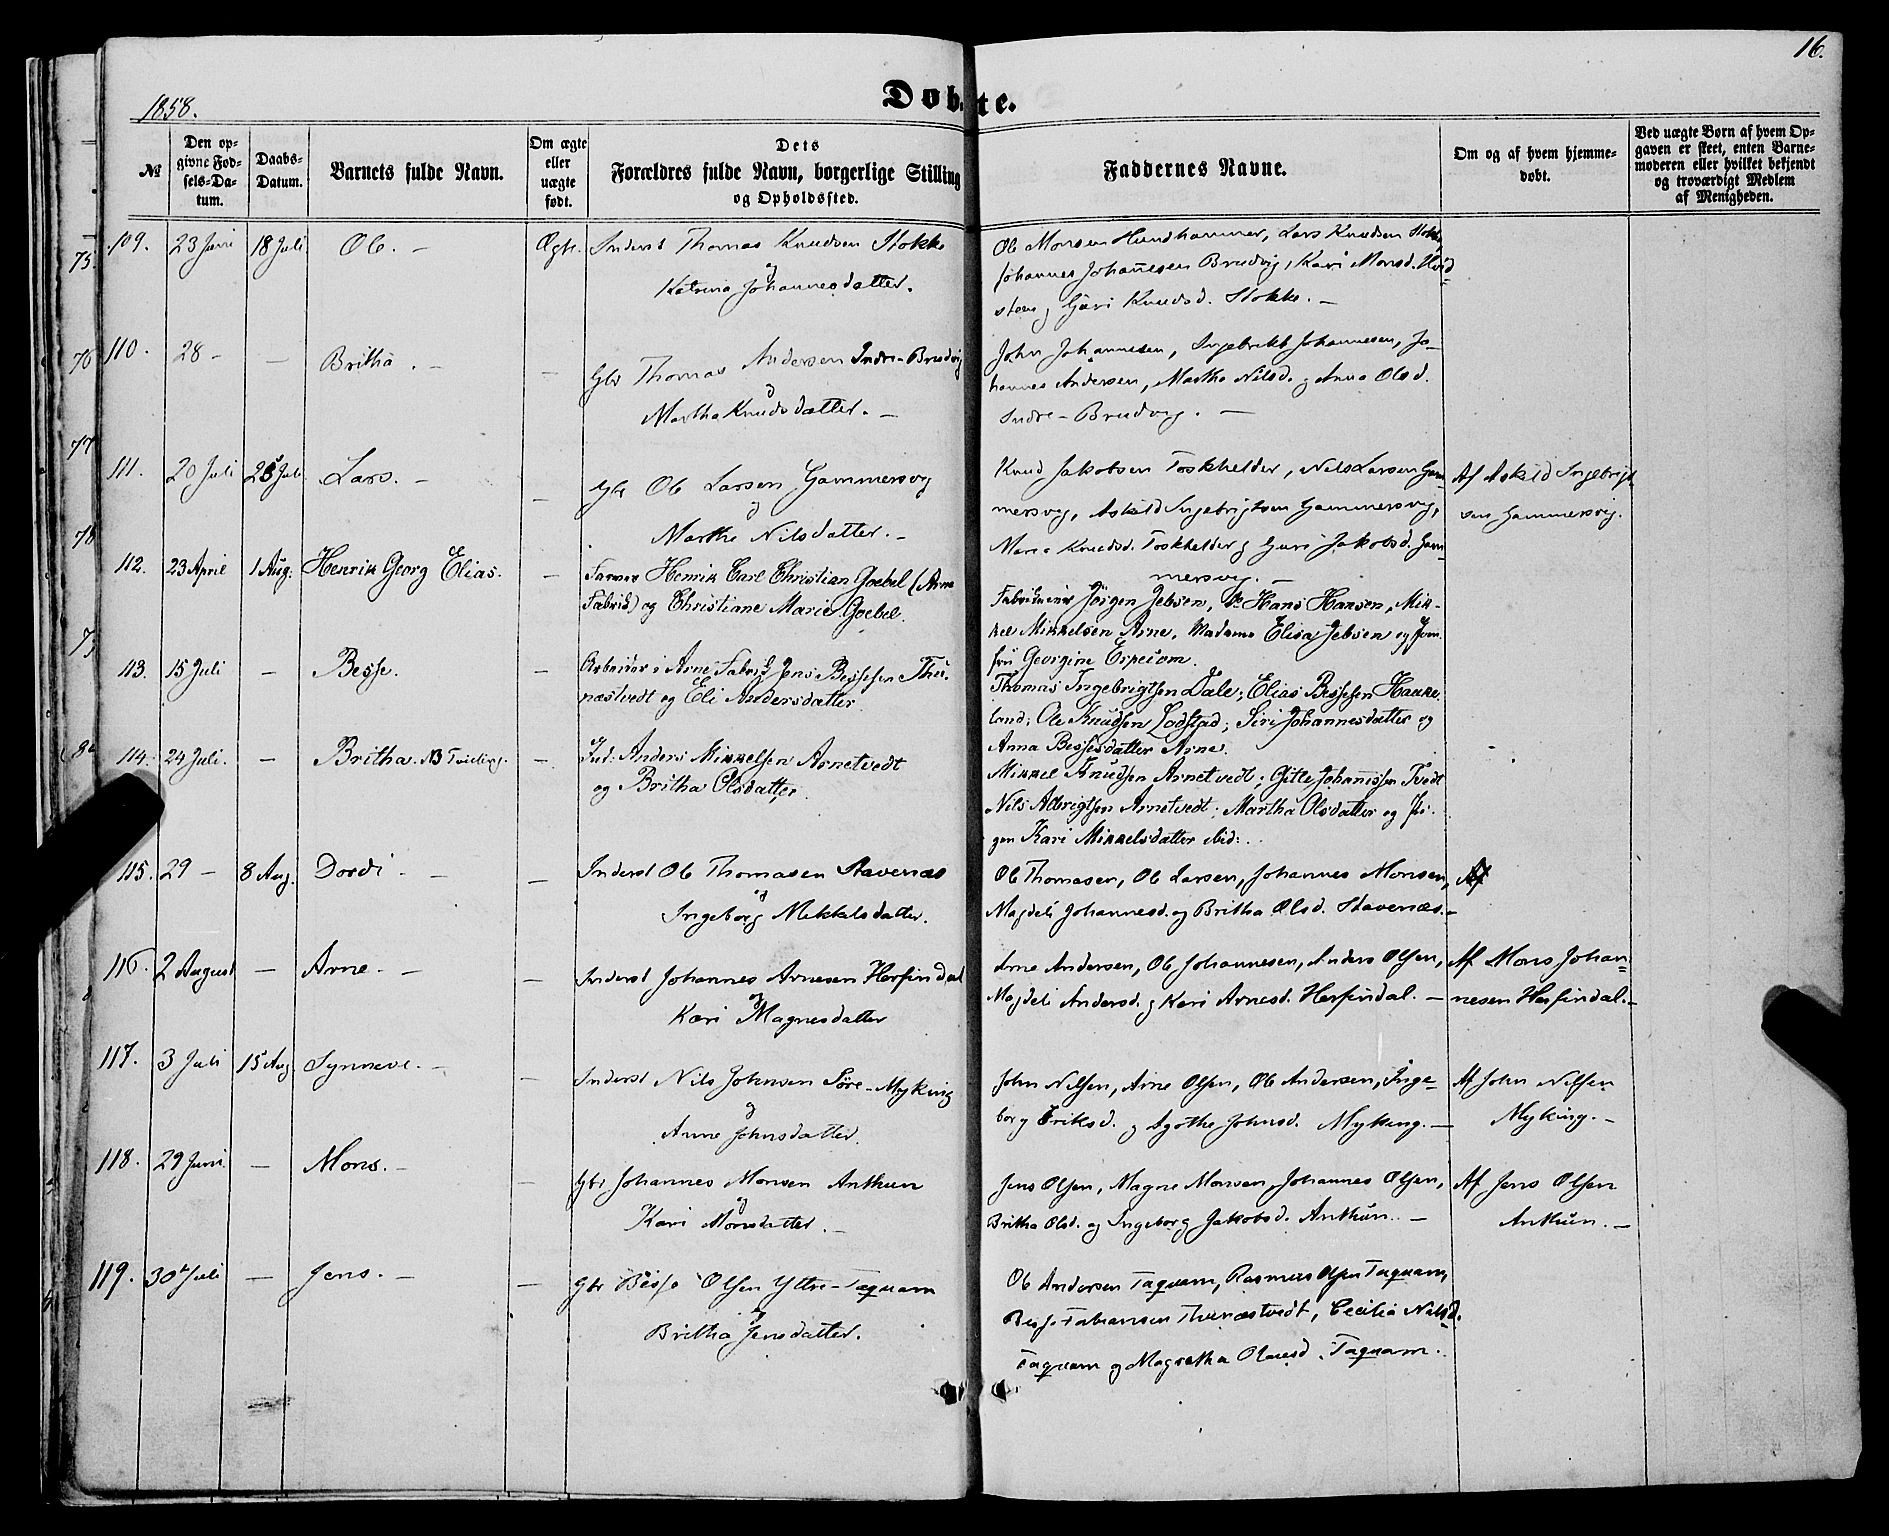 16.
1858.
Døbte.
№
Den opgivne Fødsels-Datum.
Daabs-Datum.
Barnets fulde Navn.
Om ægte eller uægte født.
Dets Forældres fulde Navn, borgerlige Stilling og Opholdssted.
Faddernes Navne.
Om og af hvem hjemmedøbt.
Ved uægte Børn af hvem Opgaven er skeet, enten Barnemoderen eller hvilket bekjendt og troværdigt Medlem af Menigheden.
109. 23 Juni 18 Juli Ole. – Ægte. Inderst Thomas Knudsen Stokke
og
Katrina Johannesdatter.
Ole Monsen Hundhammer, Lars Knudsen Stokke,
Johannes Johannesen Brudvig, Kari Monsd. Hvid-
steen og Guri Knudsd. Stokke. –
110. 28 – – Britha. – – Gbr Thomas Andersen Indre-Brudvig
og
Martha Knudsdatter. –
John Johannesen, Ingebrikt Johannesen, Jo-
hannes Andersen, Martha Nilsd. og Anna Olsd.
Indre-Brudvig. –
111. 20 Juli 25 Juli Lars. – – Gbr Ole Larsen Gammersvig
og
Marthe Nilsdatter. –
Knud Jakobsen Toskhelder, Nils Larsen Gam-
mersvig, Askild Ingebrigtsen Gammersvig,
Mari Knudsd. Toskhelder og Guri Jakobsd. Gam-
mersvig. –
Af Askild Ingebrigt-
sen Gammersvig.
112. 23 April 1 Aug. Henrik Georg Elias. – Farver Henrik Carl Christian Goebel (Arne
Fabrik) og Christiane Marie Goebel.
Fabrikeier Jørgen Jebsen, Do Hans Hansen, Mik-
kel Mikkelsen Arne, Madame Elisa Jebsen og Jom-
fru Georgine
113. 15 Juli – Besse. – Arbeider i Arne Fabrik Jens Bessesen Thu-
næstvedt og Eli Andersdatter.
Thomas Ingebrigtsen Dale; Elias Bessesen Hauke-
land; Ole Knudsen Lodstad; Siri Johannesdatter og
Anna Bessesdatter Arne.
114. 24 Juli. – Britha. NB Tvilling. – Ind: Anders Mikkelsen Arnetvedt
og Britha Olsdatter.
Mikkel Knudsen Arnetvedt; Gitle Johannessen Tvedt
Nils Albrigtsen Arnetvedt; Martha Olsdatter og Pi-
gen Kari Mikkelsdatter ibid:.
115. 29 – 8 Aug. Dordi. – – Inderst Ole Thomasen Stavenæs
og
Ingeborg Mikkelsdatter.
Ole Thomasen, Ole Larsen, Johannes Monsen,
Magdeli Johannesd. og Britha Olsd. Stavenæs. –
Af
116. 2 August – Arne. – – Inderst Johannes Arnesen Herfindal
og
Kari Magnesdatter
Arne Andersen, Ole Johannesen, Anders Olsen,
Magdeli Andersd. og Kari Arnesd. Herfindal. –
Af Mons Johan-
nesen Herfindal. –
117. 3 Juli 15 Aug Synneve. – – Inderst Nils Johnsen Søre-Myking
og
Anne Johnsdatter.
John Nilsen, Arne Olsen, Ole Andersen, Inge-
borg Eriksd. og Agothe Johnsd. Myking. –
Af John Nilsen
Myking. –
118. 29 Juni – Mons. – – Gbr Johannes Monsen Anthun
og
Kari Monsdatter. –
Jens Olsen, Magne Monsen, Johannes Olsen,
Britha Olsd. og Ingeborg Jakobsd. Anthun. –
Af Jens Olsen
Anthun. –
119. 30 Juli – Jens. – – Gbr Besse Olsen Yttre-Taquam
og
Britha Jensdatter.
Ole Andersen Taquam, Rasmus Olsen Taquam,
Besse Fabiansen Thunæstvedt, Cecilia Nilsd.
Taquam og Magretha Olausd. Taquam.
75.
76
77
78
79